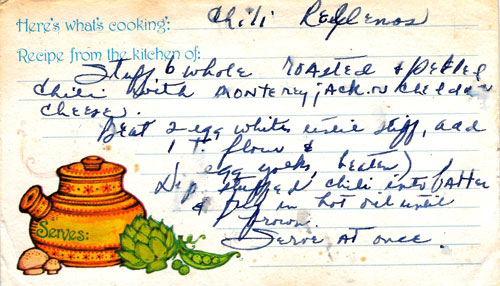 Here's what's cooking: Chili Rellenos
Recipe from the kitchen of:
Stuff 6 whole roasted & peeled
chili with Monterey jack or chedder
cheese.
Beat 2 egg whites until stiff, add
1 T. flour &
egg yolks, beaten)
Dip stuffed chili into batter
& fry in hot oil until
brown.
Serve at once.
Serves: